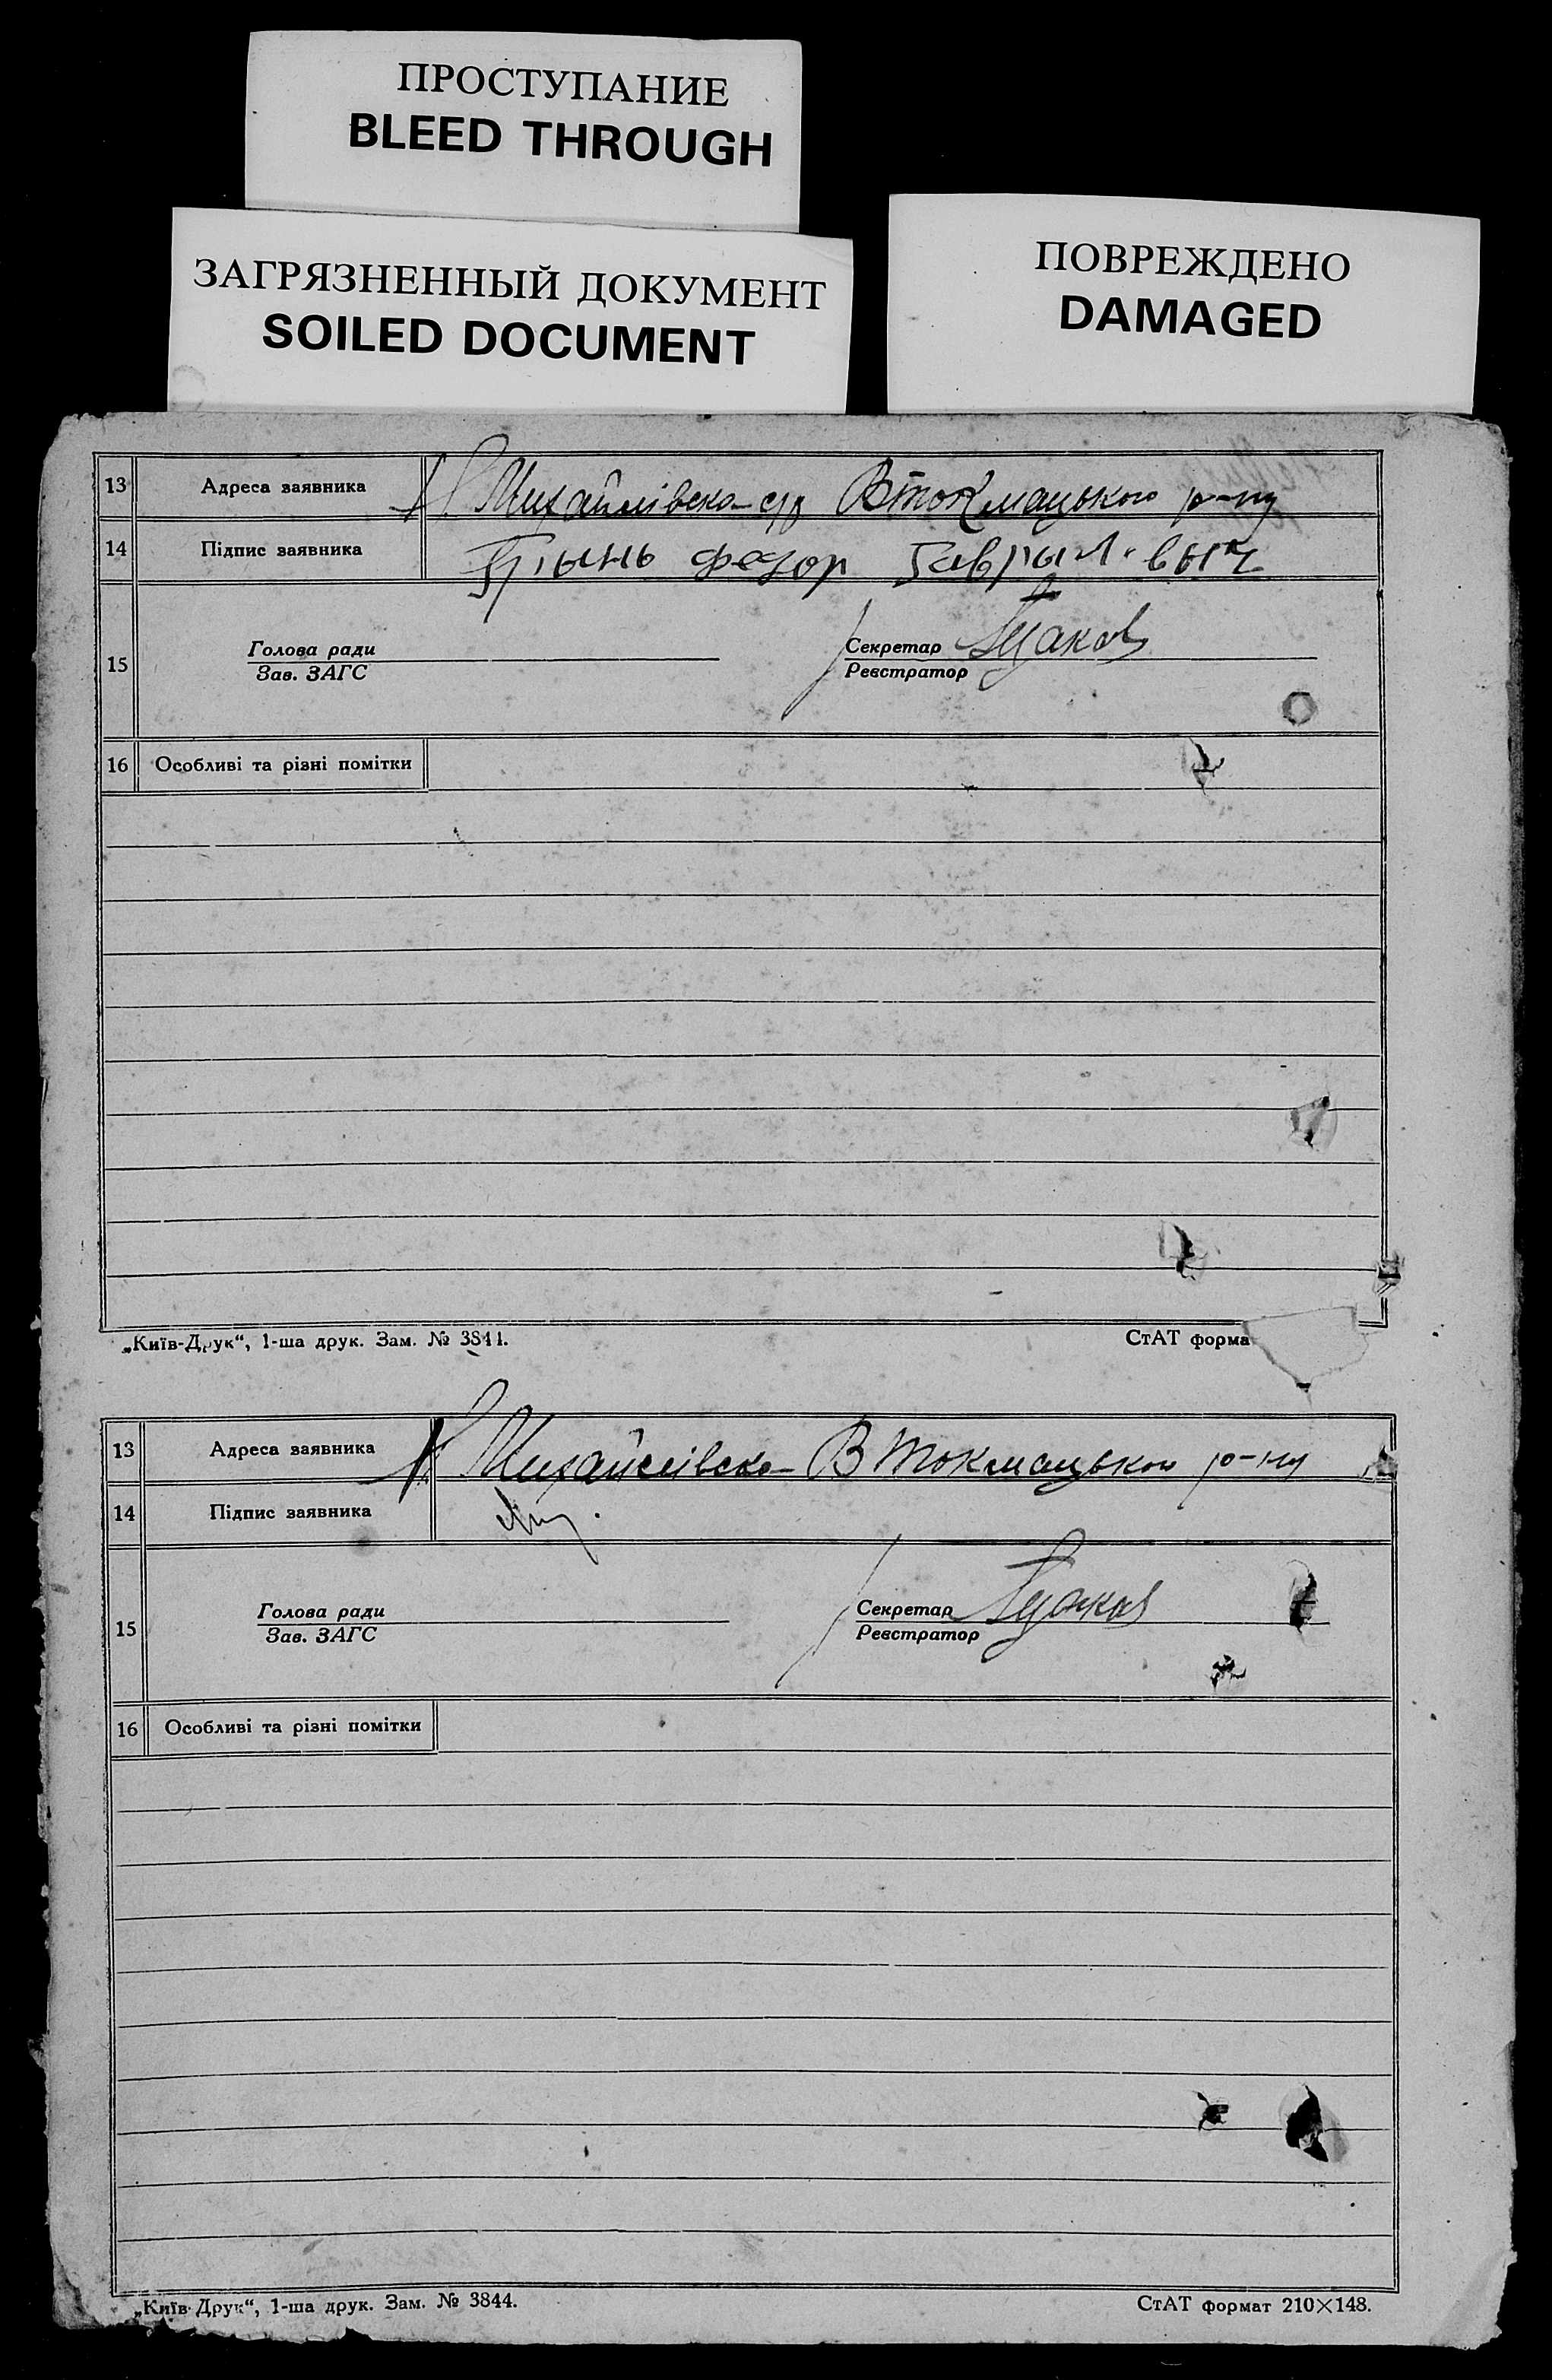 ПРОСТУПАНИЕ
BLEED THROUGH
ЗАГРЯЗНЕННЫЙ ДОКУМЕНТ
SOILED DOCUMENT
ПОВРЕЖДЕНО
DAMAGED
13 Адреса заявника Михайлівско- В Токмацького р-ну
14 Підпис заявника Грынь Федор Гаврыловыч
Голова ради Секретар
15
Зав. ЗАГС Реєстратор
16 Особливі та різні помітки
„Київ-Друк“, 1-ша друк. Зам. № 3844. СтАТ форма
13 Адреса заявника Михайлівско- В Токмацького р-ну
14 Підпис заявника
Голова ради Секретар
15
Зав. ЗАГС Реєстратор
16 Особливі та різні помітки
„Київ-Друк“, 1-ша друк. Зам. № 3844. СтАТ формат 210×148.